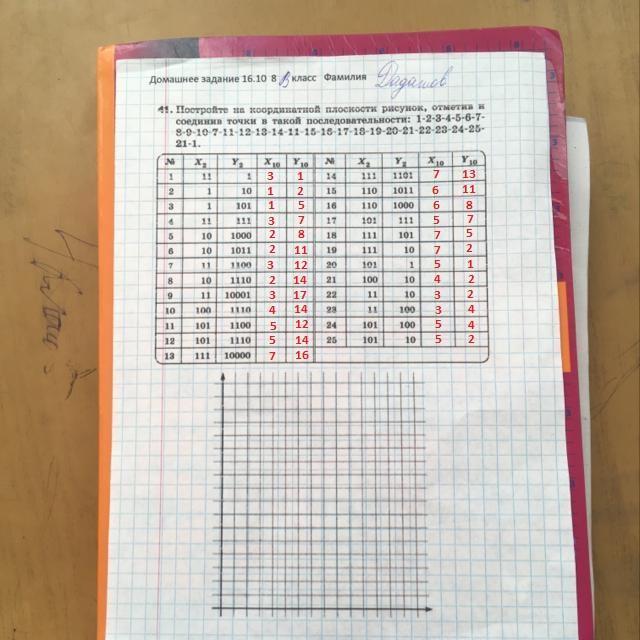 Домашнее задание 16.10 8 В класс Фамилия Дадашов
41. Постройте на координатной плоскости рисунок, отметив и
соединив точки в такой последовательности: 1-2-3-4-5-6-7-
8-9-10-7-11-12-13-14-11-15-16-17-18-19-20-21-22-23-24-25-
21-1.
№ X2 Y2 X10 Y10 № X2 Y2 X10 Y10
1 11 1 3 1 14 111 1101 7 13
2 1 10 1 2 15 110 1011 6 11
3 1 101 1 5 16 110 1000 6 8
4 11 111 3 7 17 101 111 5 7
5 10 1000 2 8 18 111 101 7 5
6 10 1011 2 11 19 111 10 7 2
7 11 1100 3 12 20 101 1 5 1
8 10 1110 2 14 21 100 10 4 2
9 11 10001 3 17 22 11 10 3 2
10 100 1110 4 14 23 11 100 3 4
11 101 1100 5 12 24 101 100 5 4
12 101 1110 5 14 25 101 10 5 2
13 111 10000 7 16